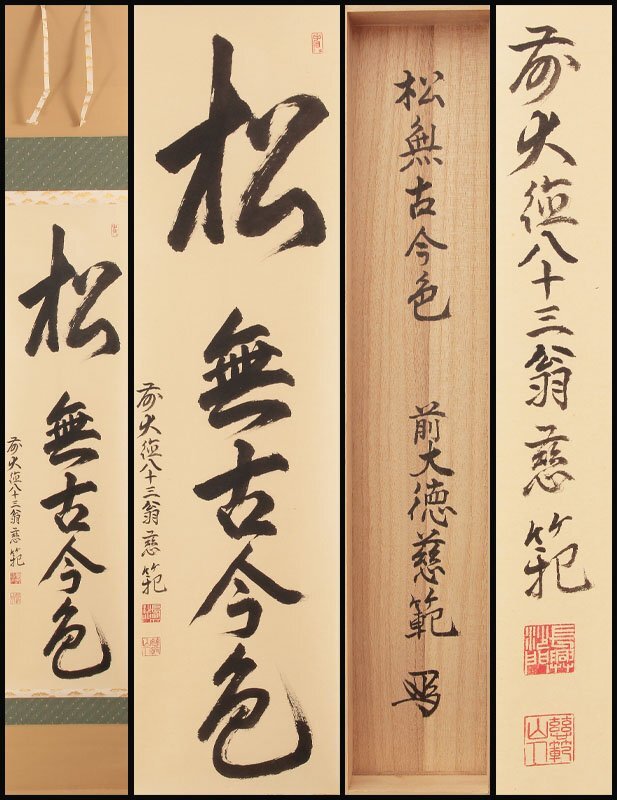 松無古今色
前大徳八十三翁慈範
松無古今色
前大徳八十三翁慈範
松無古今色
前大徳慈範
前大徳八十三翁慈範
長興
沙門
慈範
山人